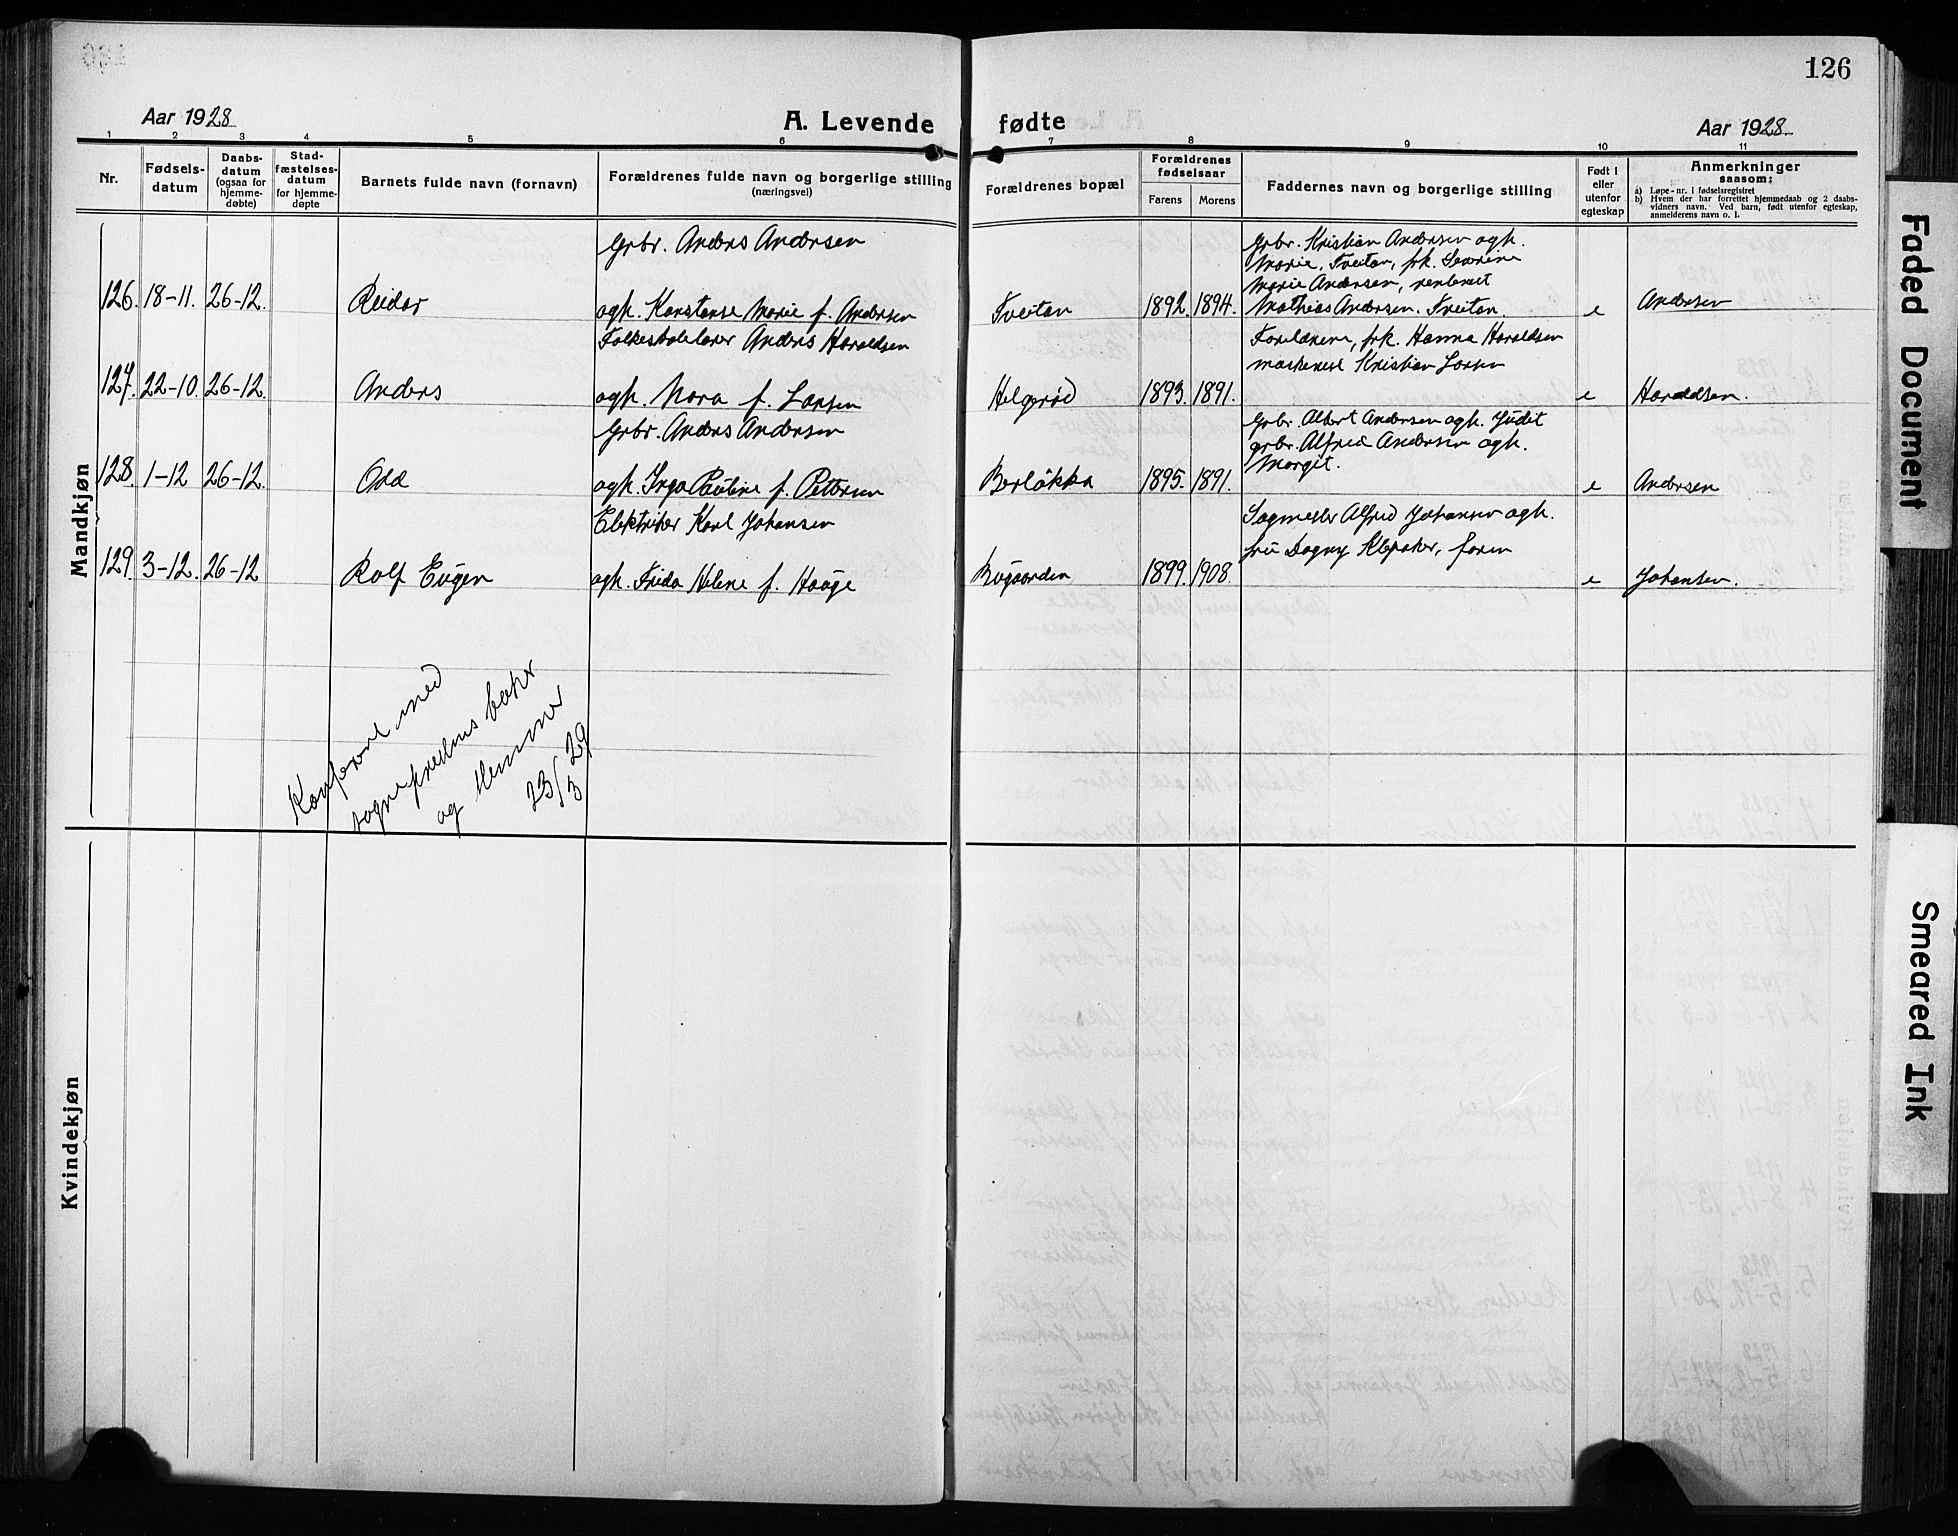 126
Aar 1928
A. Levende fødte
Aar 1928.
1 2 3 4 5 6 7 8 9 10 11
Nr.
Fødsels-
datum
Daabs-
datum
(ogsaa for
hjemme-
døbte)
Stad-
fæstelses-
datum
for hjemme-
døpte
Barnets fulde navn (fornavn)
Forældrenes fulde navn og borgerlige stilling
(næringsvei)
Forældrenes bopæl
Forældrenes
fødselsaar
Farens Morens
Faddernes navn og borgerlige stilling
Født i
eller
utenfor
egteskap
Anmerkninger
saasom:
a) Løpe-nr. i fødselsregistret
b) Hvem der har forrettet hjemmedaab og 2 daabs-
vidners navn. Ved barn, født utenfor egteskap,
anmelderens navn o. l.
Mandkjøn
Grbr. Anders Andersen
126. 18-11. 26-12. Reidar
ogh. Konstanse Marie f. Andersen
Tveitan 1892. 1894.
Grbr. Kristian Andersen ogh.
Marie, Tveitan, frk. Severine
Marie Andersen, rentenist
Mathias Andersen. Tveitan.
e Andersen
Folkeskolelærer Anders Haraldsen
127. 22-10. 26-12. Anders
ogh. Nora f. Larsen
Helgerød 1893. 1891.
Forældrene, frk. Hanna Haraldsen
maskinist Kristian Larsen
e Haraldsen.
Grbr. Anders Andersen
128. 1-12 26-12. Odd
ogh. Inga Pauline f. Pettersen
Berløkka 1895. 1891.
Grbr. Albert Andersen ogh. Judit
grbr. Alfred Andersen ogh.
Margit.
e Andersen
Elektriker Karl Johansen
129. 3-12. 26-12 Rolf Eugen
ogh. Frida Helene f. Hauge
Bugaarden 1899. 1908.
Sagmester Alfred Johansen ogh.
fru Dagny Klepaker, faren
e Johansen.
Konferert med
sogneprestens bøker
og stemmer
23/3 29
Kvindekjøn
Faded Document
Smeared Ink